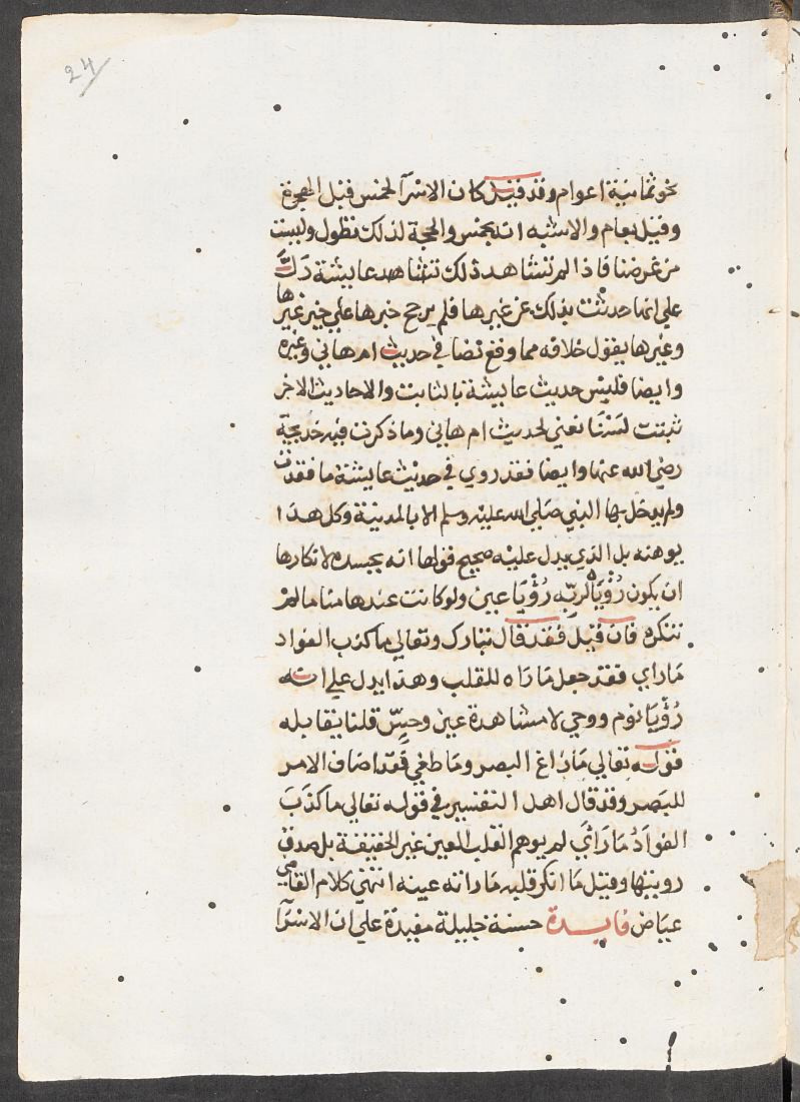 24
نحو ثمانية اعوام وقد قيل كان الاسرآ لخمس قبل الهجرة
وقيل بعام والاشبه انه بخمس والحجة لذلك تطول وليست
من غرضنا فاذا لم تشاهد ذلك تشاهد عايشة دَلَّ
علي انها حدثت بذلك عن غيرها فلم يرجح خبرها علي خبر غيرها
وغيرها يقول خلافه مما وقع نصا في حديث ام هاني وغيره
وايضا فليس حديث عايشة بالثابت والاحاديث الاخر
ثبتت لسنا نعني لحديث ام هاني وما ذكرت فيه خديجة
رضي الله عنها وايضا فقد روي في حديث عايشة ما فقدت
ولم يدخل بها النبي صلي الله عليه وسلم الا بالمدينة وكل هذا
يوهنه بل الذي يدل عليه صحيح قولها انه بجسده لانكارها
ان يكون رُؤْيَا لربّه رُؤْيَا عين ولو كانت عندها مناما لم
تنكره فان قيل فقد قال تبارك وتعالي ما كذب الفواد
مَا راي فقد جعل مَا رَاه للقلب وهذا يدل علي انه
رُؤْيَا نوم ووحي لا مشاهدة عين وحِسّ قلنا يقابله
قوله تعالي مَا زَاغ البصر ومَا طغي فقد اضاف الامر
للبَصر وقد قال اهل التفسير في قوله تعالي ما كذَبَ
الفوادُ مَا رَائَي لم يوهم القلب العين غير الحقيقة بل صدق
رويتها وقيل مَا انكر قلبه مَا راته عينه انتهي كلام القاضي
عيَاض فايدة حسنة جليلة مفيدة علي ان الاسرآ